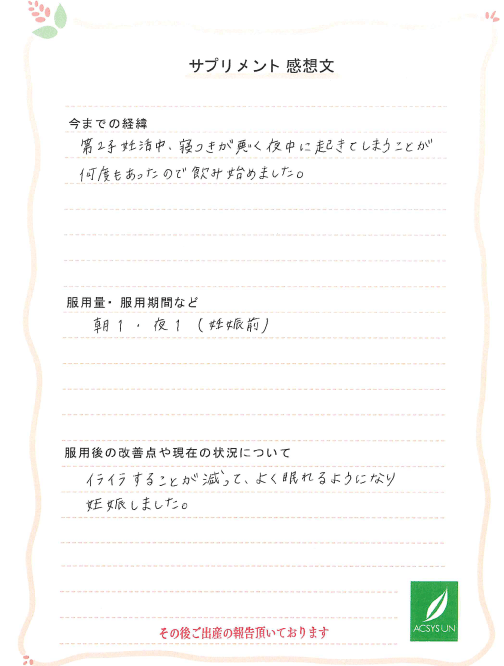 サプリメント 感想文
今までの経緯
第2子妊活中、寝つきが悪く夜中に起きてしまうことが
何度もあったので飲み始めました。
服用量・服用期間など
朝1・夜1 (妊娠前)
服用後の改善点や現在の状況について
イライラすることが減って、よく眠れるようになり
妊娠しました。
ACSYSUN
その後ご出産の報告頂いております